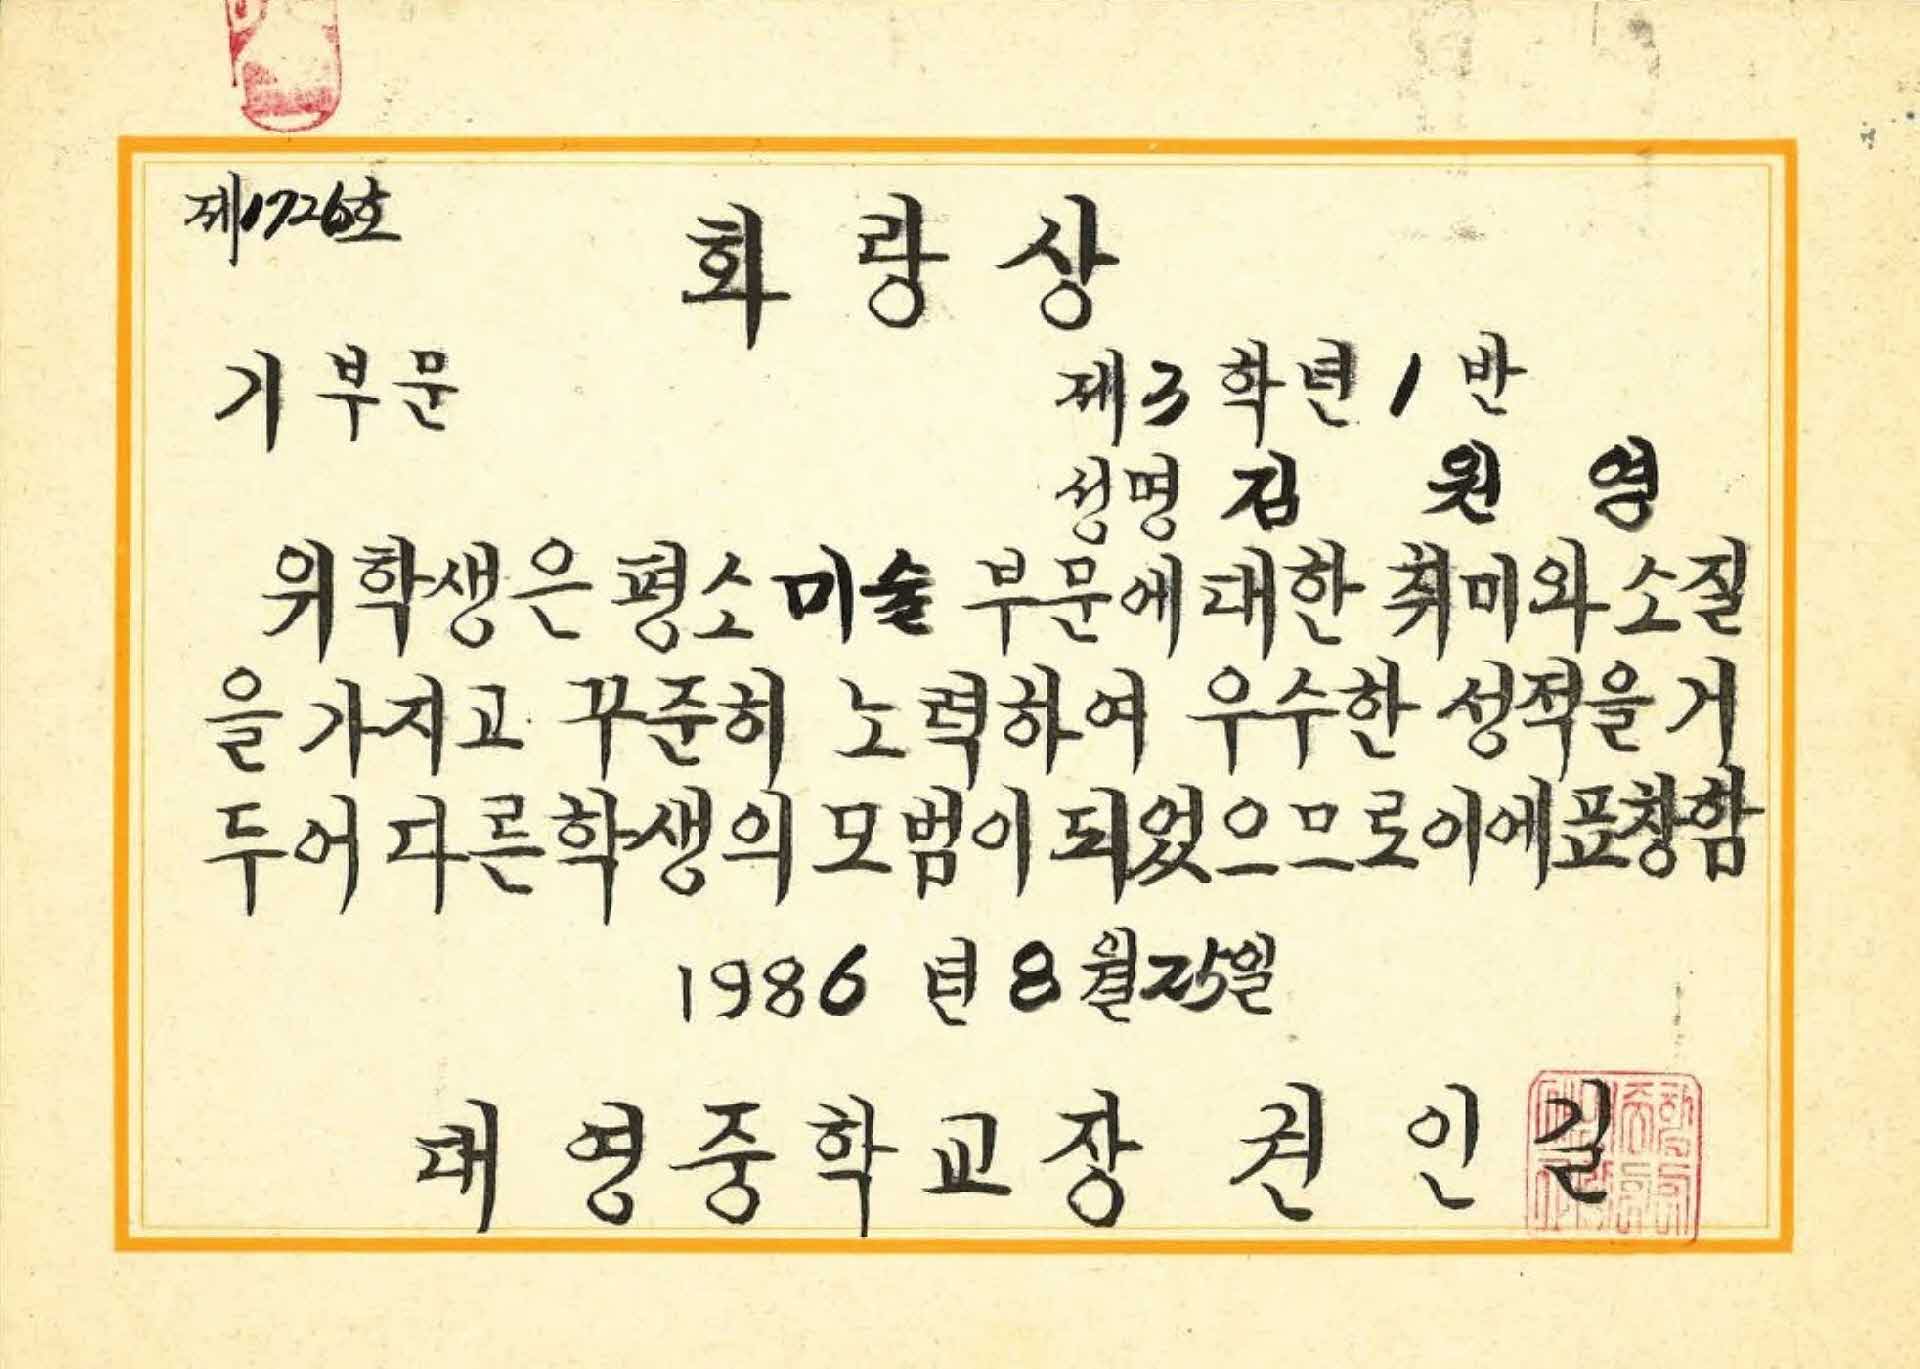 제1726호
화랑상
기부문
제3학년1반
성명 김원영
위학생은평소미술부문에대한취미와소질
을가지고 꾸준히 노력하여 우수한성적을거
두어다른학생의모범이되었으므로이에표창함
1986년8월25일
태영중학교장 권인길